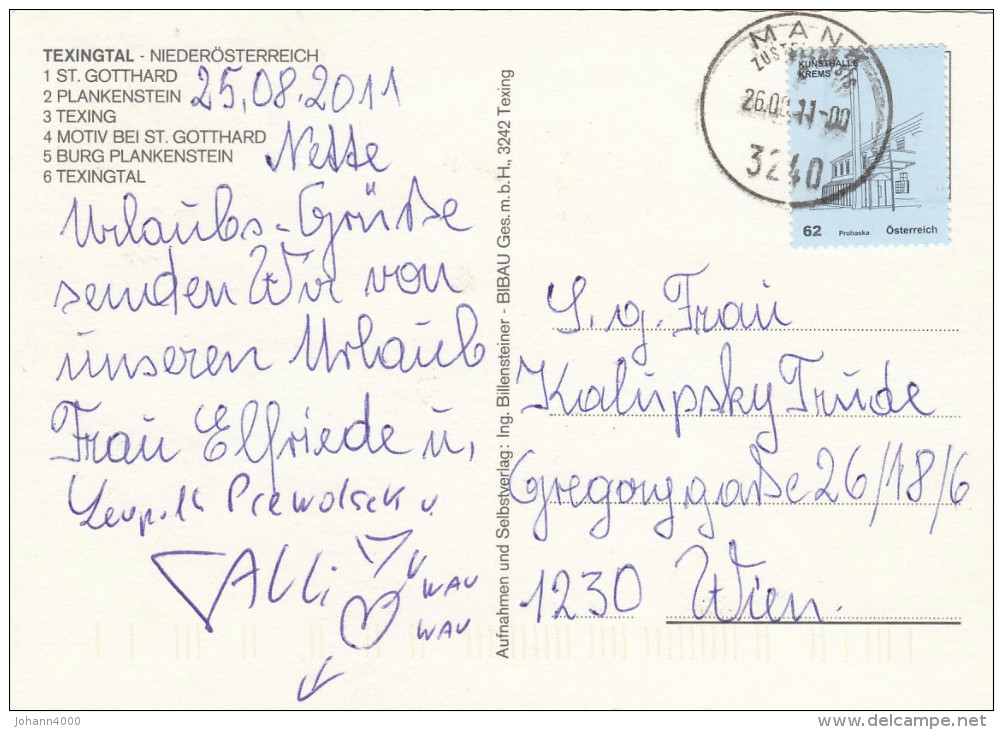 TEXINGTAL - NIEDERÖSTERREICH
1 ST. GOTTHARD
2 PLANKENSTEIN
3 TEXING
4 MOTIV BEI ST. GOTTHARD
5 BURG PLANKENSTEIN
6 TEXINGTAL
25.08.2011
Nette
Urlaubs-Grüße
senden Wir von
unseren Urlaub
Frau Elfriede u.
Leopold u
WAU
WAU
Aufnahmen und Selbstverlag: Ing. Billensteiner - BIBAU Ges.m.b.H., 3242 Texing
MAN
26.08.11-00
3240
KUNSTHALLE
KREMS
62 Prohaska Österreich
S. g. Frau
Kalupsky Trude
Gregorygaße 26/18/6
1230 Wien.
johann4000
delcampe.net